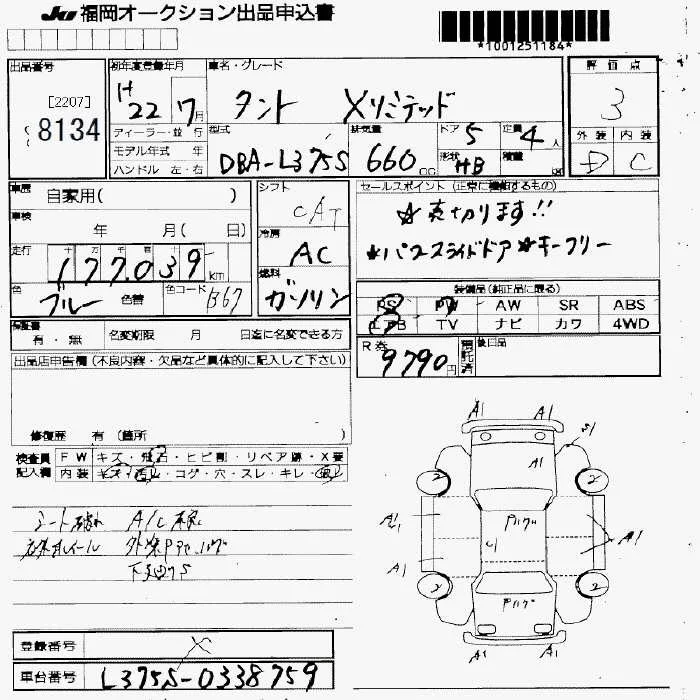 JU 福岡オークション出品申込書
*1001251184*
出品番号
[2207]
8134
初年度登録年月
H22 7月
ディーラー・並 行
モデル年式 年
ハンドル 左・右
車名・グレード
タント Xリミテッド
型式
DBA-L375S
排気量
660 CC
ドア 5
定員 4人
形状 HB
積量
評価点
3
外装 内装
D C
車歴 自家用( )
車検 年 月( 日)
走行 十 万 千 百 十
177,039 km
色 ブルー 色替
色コード B67
シフト
CAT
冷房
AC
燃料
ガソリン
セールスポイント (正常に機能するもの)
☆売切ります!!
★パワースライドドア★キーフリー
装備品(純正品に限る)
PS PW AW SR ABS
TV ナビ カワ 4WD
R券
9790円
預託済
後日品
保証書
有・無
名変期限 月 日迄に名変できる方
出品店申告欄(不良内容・欠品など具体的に記入して下さい)
修復歴 有 〔箇所 〕
検査員記入欄
FW キズ・飛石・ヒビ割・リペア跡・X要
内装 キズ・汚れ・コゲ・穴・スレ・キレ・
シート A/C
ホイール
下回りS
A1 A1
S1
A1
2 2
A1
A1
A1
2 2
A1 A1
登録番号
車台番号 L375S-0338759